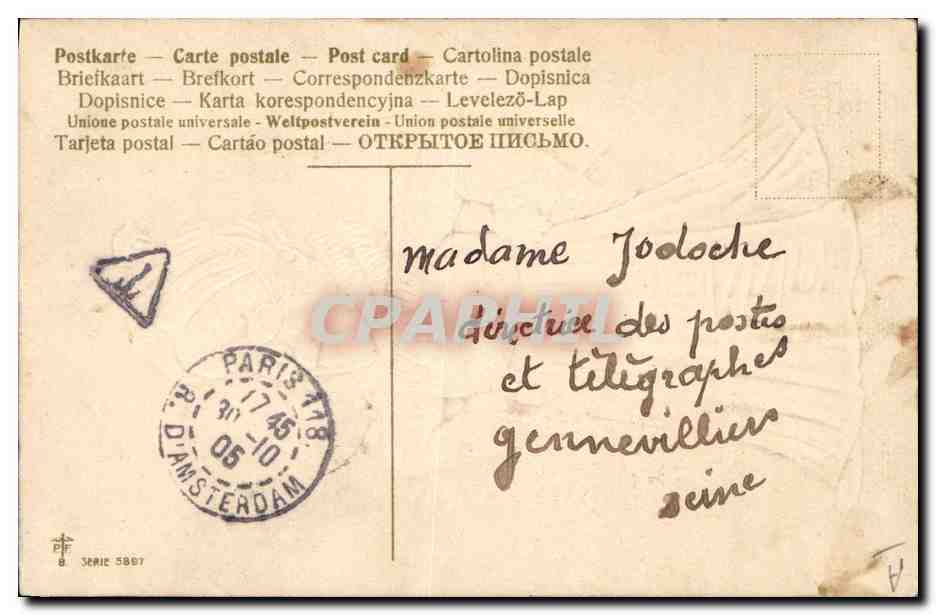 Postkarte — Carte postale — Post card — Cartolina postale
Briefkaart — Brefkort — Correspondenzkarte — Dopisnica
Dopisnice — Karta korespondencyjna — Levelezõ-Lap
Unione postale universale - Weltpostverein - Union postale universelle
Tarjeta postal — Cartáo postal — ОТКРЫТОЕ ПИСЬМО.
madame Jodoche
directrice des postes
et télégraphes
gennevilliers
seine
CPAPHIL
PARIS 118
17 45
30 -10
05
R. D'AMSTERDAM
P F
8. SERIE 5897
A